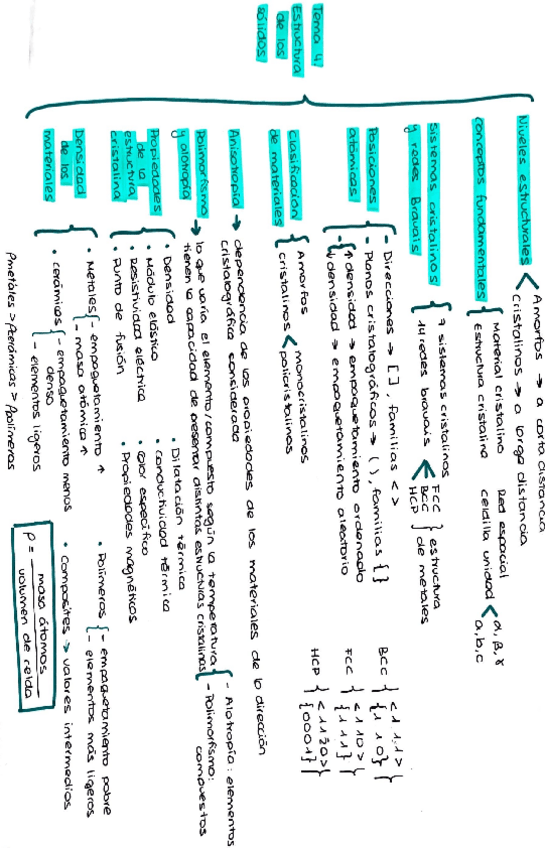 Tema 4:
Estructura
de los
sólidos
Niveles estructurales < Amorfos → a corta distancia
cristalinos → a larga distancia
conceptos fundamentales { Material cristalino Red espacial
Estructura cristalina celdilla unidad < α, β, γ
a, b, c
Sistemas cristalinos
y redes Bravais { 7 sistemas cristalinos
14 redes bravais < FCC
BCC
HCP } estructura
de metales
Posiciones
atómicas { - Direcciones → [ ], familias < >
- Planos cristalográficos → ( ), familias { }
- { ↑ densidad → empaquetamiento ordenado
↓ densidad → empaquetamiento aleatorio
BCC { < 1 1 1 >
{ 1 1 0 }
FCC { < 1 1 0 >
{ 1 1 1 }
HCP { < 1 1 2 0 >
{ 0 0 0 1 }
clasificación
de materiales { Amorfos
cristalinos < monocristalinos
policristalinos
Anisotropía → dependencia de las propiedades de los materiales de la dirección
cristalográfica considerada
Polimorfismo
y alotropía → lo que varía el elemento/compuesto según la temperatura
tienen la capacidad de presentar distintas estructuras cristalinas { - Alotropía: elementos
- Polimorfismo:
compuestos
Propiedades
de la
estructura
cristalina { • Densidad
• Módulo elástico
• Resistividad eléctrica
• Punto de fusión
• Dilatación térmica
• conductividad térmica
• calor específico
• Propiedades magnéticas
Densidad
de los
materiales { • Metales { - empaquetamiento ↑
- masa atómica ↑
• cerámicos { - empaquetamiento menos
denso
- elementos ligeros
• Polímeros { - empaquetamiento pobre
- elementos más ligeros
• composites → valores intermedios
ρmetales > ρcerámicos > ρpolímeros
ρ = masa átomos
volumen de celda